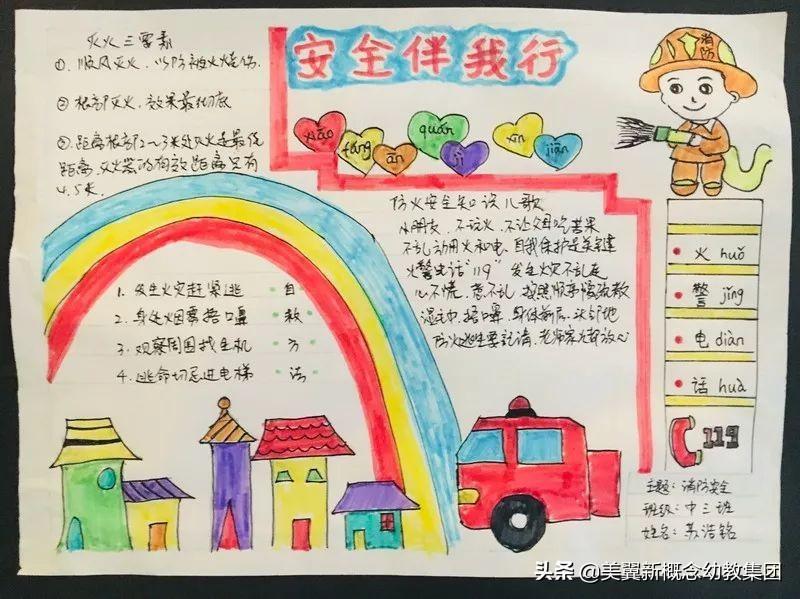 安全伴我行
灭火三要素
①.顺风灭火,以防被火烧伤.
②根部灭火,效果最彻底
③.距离根部2~3米处灭火是最佳
距离,灭火器的有效距离只有
4.5米.
消防
xiāo fáng ān quán jì xīn jiān
防火安全知识儿歌
小朋友,不玩火,不让父母吃苦果
不乱动用火和电,自我保护是关键
火警电话"119"发生火灾不乱走
心不慌,意不乱,按照顺序
湿毛巾,捂口鼻,身体前屈
防火逃生要记清,老师家长都放心
1.发生火灾赶紧逃 自
2.身处烟雾捂口鼻 救
3.观察周围找生机 方
4.逃命切忌进电梯 法
火 huǒ
警 jǐng
电 diàn
话 huà
119
主题:消防安全
班级:中三班
姓名:苏浩铭
头条 @美翼新概念幼教集团